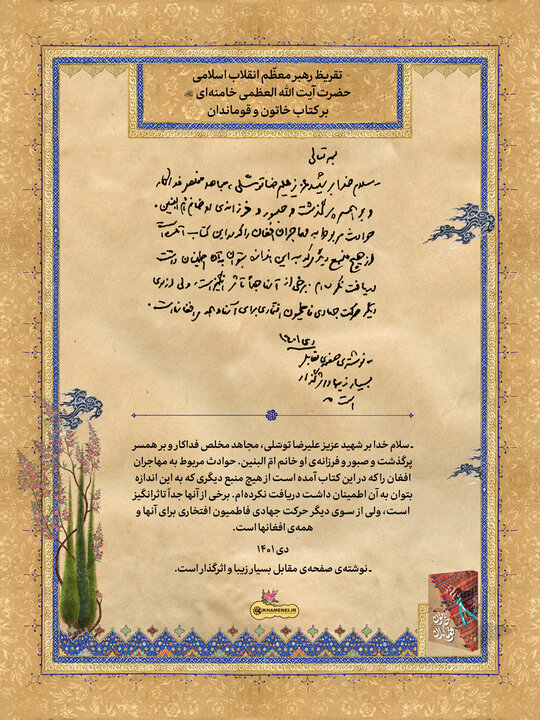 تقریظ رهبر معظّم انقلاب اسلامی
حضرت آیت الله العظمی خامنه‌ای
بر کتاب خاتون و قوماندان
بسمه تعالی
ـ سلام خدا بر شهید عزیز علیرضا توسّلی، مجاهد مخلص فداکار
و بر همسر پرگذشت و صبور و فرزانه‌ی او خانم امّ البنین.
حوادث مربوط به مهاجران افغان را که در این کتاب آمده است
از هیچ منبع دیگری که به این اندازه بتوان به آن اطمینان داشت
دریافت نکرده‌ام. برخی از آنها جداً تاثرانگیز است، ولی از سوی
دیگر حرکت جهادی فاطمیون افتخاری برای آنها و همه‌ی افغانها است.
دی ۱۴۰۱
ـ نوشته‌ی صفحه‌ی مقابل
بسیار زیبا و اثرگذار
است
ـ سلام خدا بر شهید عزیز علیرضا توسّلی، مجاهد مخلص فداکار و بر همسر
پرگذشت و صبور و فرزانه‌ی او خانم امّ البنین. حوادث مربوط به مهاجران
افغان را که در این کتاب آمده است از هیچ منبع دیگری که به این اندازه
بتوان به آن اطمینان داشت دریافت نکرده‌ام. برخی از آنها جداً تاثرانگیز
است، ولی از سوی دیگر حرکت جهادی فاطمیون افتخاری برای آنها و
همه‌ی افغانها است.
دی ۱۴۰۱
ـ نوشته‌ی صفحه‌ی مقابل بسیار زیبا و اثرگذار است.
KHAMENEI.IR
خاتون
قوماندان